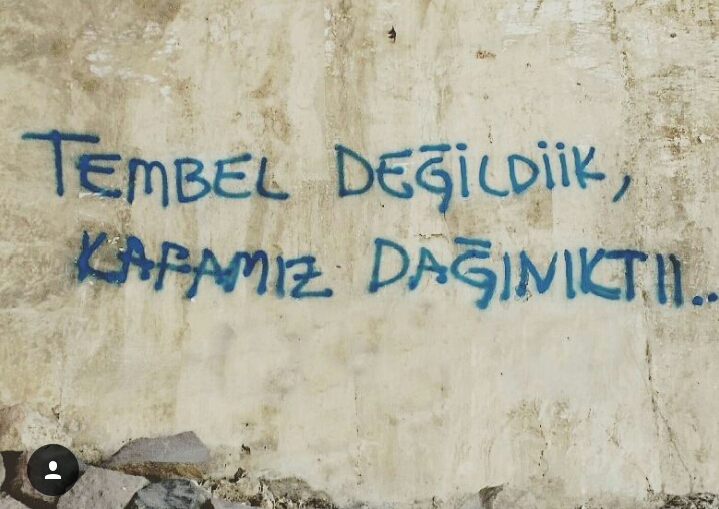 TEMBEL DEĞİLDİİK,
KAFAMIZ DAĞINIKTII..